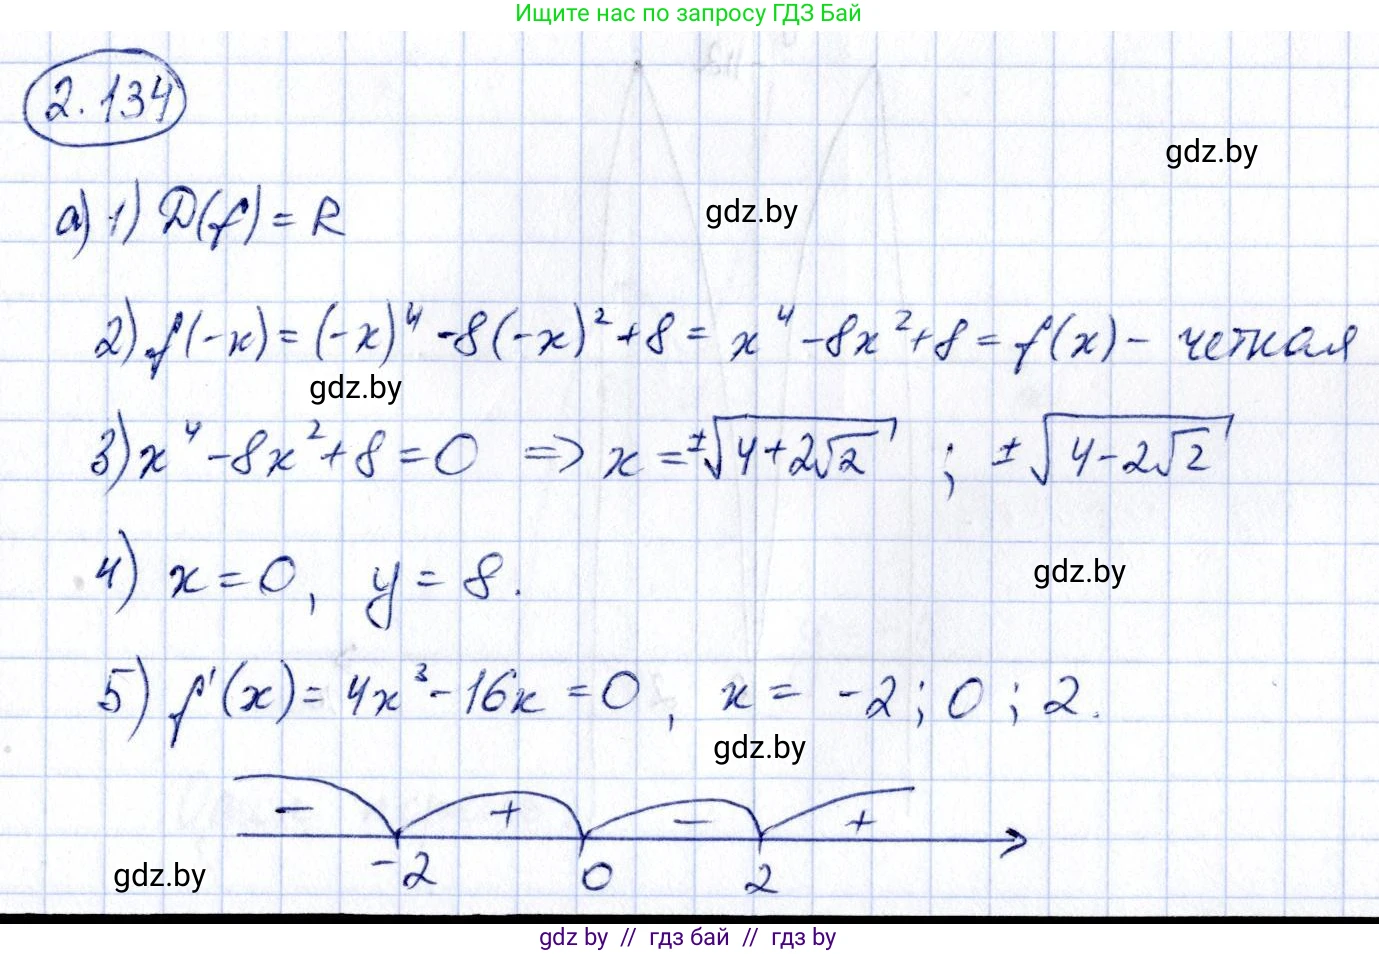 Ищите нас по запросу ГДЗ Бай
2.134
gdz.by
а) 1) D(f) = R
gdz.by
2) f(-x) = (-x)⁴ - 8(-x)² + 8 = x⁴ - 8x² + 8 = f(x) - четная
gdz.by
3) x⁴ - 8x² + 8 = 0 => x = ±√(4+2√2) ; ±√(4-2√2)
4) x = 0, y = 8.
gdz.by
5) f'(x) = 4x³ - 16x = 0, x = -2; 0; 2.
gdz.by
- + - +
-2 0 2
gdz.by
gdz by // гдз бай // гдз by